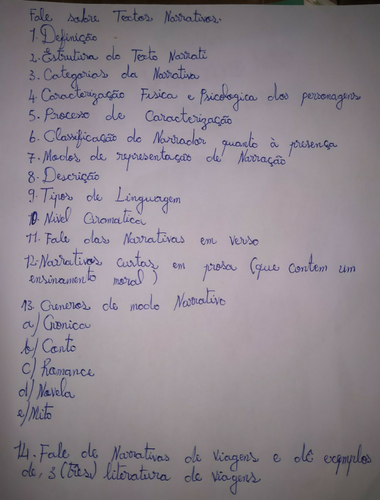 Fale sobre Textos Narrativos.
1 Definição
2. Estrutura do Texto Narrati
3. Categorias da Narrativa
4. Caracterização Física e Psicologica dos personagens
5. Processo de Caracterização
6. Classificação do Narrador quanto à presença
7. Modos de representação de Narração
8. Descrição
9. Tipos de Linguagem
10. Nível Gramatica
11. Fale das Narrativas em verso
12. Narrativas curtas em prosa (que contém um
ensinamento moral)
13. Generos de modo Narrativo
a) Cronica
b) Conto
c) Romance
d) Novela
e) Mito
14. Fale de Narrativas de Viagens e dê exemplos
de, 3 (três) literatura de viagens